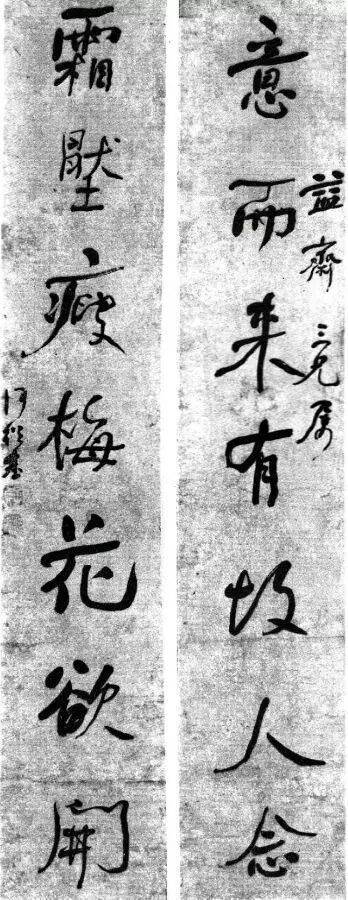 意雨来有故人念
益齋三兄属
霜壓瘦梅花欲開
何紹基